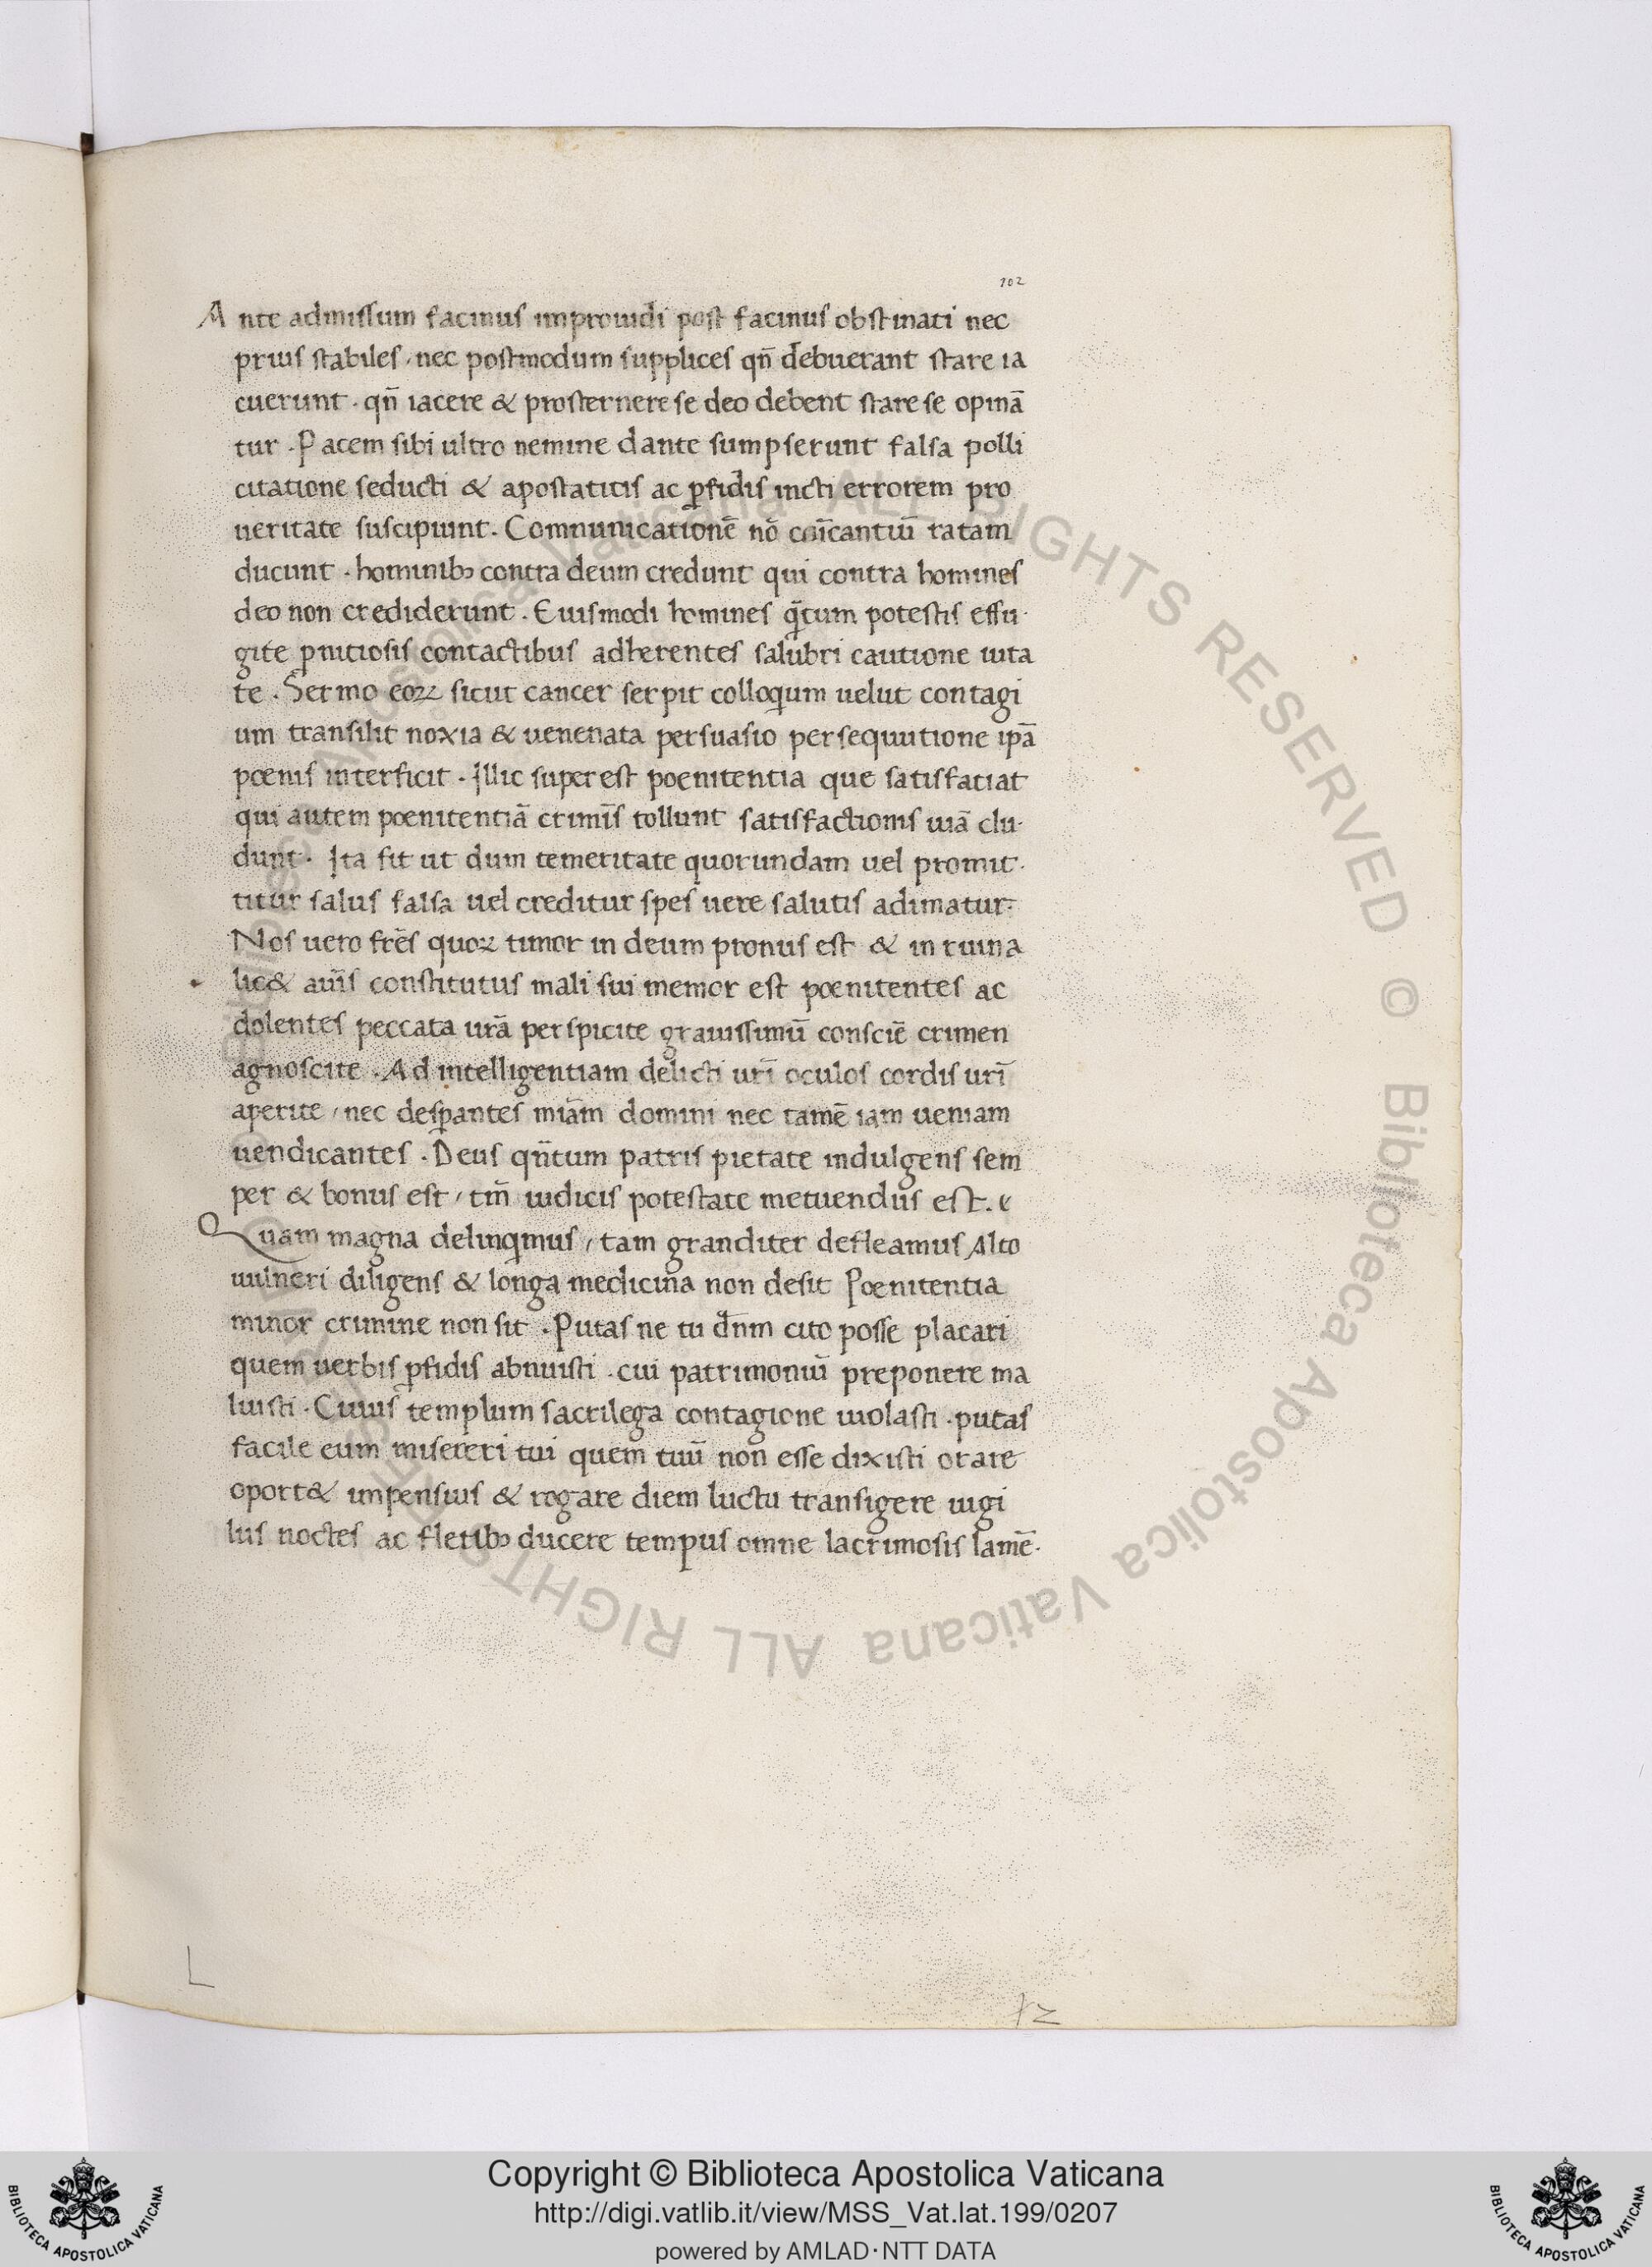 102
Ante admissum facinus improuidi post facinus obstinati nec
prius stabiles, nec postmodum supplices qn̄ debuerant stare ia
cuerunt. qn̄ iacere & prosternere se deo debent stare se opinā
tur. Pacem sibi ultro nemine dante sumpserunt falsa polli
citatione seducti & apostaticis ac ꝑfidis iucti errorem pro
ueritate suscipiunt. Comnunicationē nō cōīcantiū ratam
ducunt. hominibꝫ contra deum credunt qui contra homines
deo non crediderunt. Euismodi homines q̄tum potestis effu
gite ꝑnitiosis contactibus adherentes salubri cautione uita
te. Sermo eoꝝ sicut cancer serpit colloqium uelut contagi
um transilit noxia & uenenata persuasio persequutione ipā
pœnis interficit. Illic superest poenitentia que satisfatiat
qui autem pœnitentiā crimīs tollunt satisfactionis uiā clu
dunt. Ita fit ut dum temeritate quorundam uel promit
titur salus falsa uel creditur spes uere salutis adimatur.
Nos uero frēs quoꝝ timor in deum pronus est & in ruina
lic& aīus constitutus mali sui memor est pœnitentes ac
dolentes peccata urā perspicite grauissimū consciē crimen
agnoscite. Ad intelligentiam delicti urī oculos cordis urī
aperite, nec desꝑantes miām domini nec tamē iam ueniam
uendicantes. Deus qn̄tum patris pietate indulgens sem
per & bonus est, tm̄ iudicis potestate metuendus est. e
Quam magna delinqimus, tam granditer defleamus Alto
uulneri diligens & longa medicina non desit Pœnitentia
minor crimine non sit. Putas ne tu dn̄m cito posse placari
quem uerbis ꝑfidis abnuisti. cui patrimoniū preponere ma
luisti. Cuius templum sacrilega contagione uiolasti. putas
facile eum misereri tui quem tuū non esse dixisti orare
oport& impensius & rogare diem luctu transigere uigi
liis noctes ac fletibꝫ ducere tempus omne lacrimosis lamē
L
12
© Biblioteca Apostolica Vaticana ALL RIGHTS RESERVED © Biblioteca Apostolica Vaticana ALL RIGHTS RESERVED
Copyright © Biblioteca Apostolica Vaticana
http://digi.vatlib.it/view/MSS_Vat.lat.199/0207
powered by AMLAD·NTT DATA
BIBLIOTECA APOSTOLICA VATICANA
BIBLIOTECA APOSTOLICA VATICANA